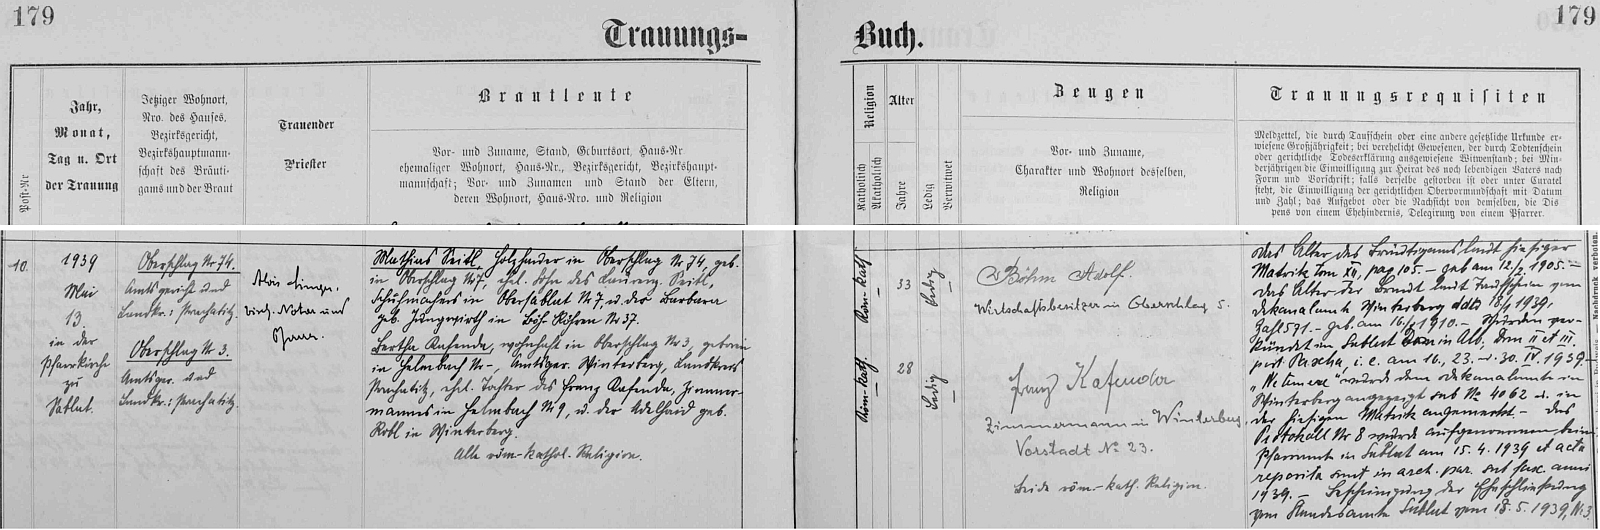 179
Trauungs-
Buch.
179
Post-Nr
Jahr,
Monat,
Tag u. Ort
der Trauung
Jetziger Wohnort,
Nro. des Hauses,
Bezirksgericht,
Bezirkshauptmann-
schaft des Bräuti-
gams und der Braut
Trauender
Priester
Brautleute
Vor- und Zuname, Stand, Geburtsort, Haus-Nr
ehemaliger Wohnort, Haus-Nr., Bezirksgericht, Bezirkshaupt-
mannschaft; Vor- und Zunamen und Stand der Eltern,
deren Wohnort, Haus-Nro. und Religion
Religion
Katholisch
Akatholisch
Alter
Jahre
Ledig
Verwitwet
Zeugen
Vor- und Zuname,
Charakter und Wohnort desselben,
Religion
Trauungsrequisiten
Meldzettel, die durch Taufschein oder eine andere gesetzliche Urkunde er-
wiesene Großjährigkeit; bei verehelicht Gewesenen, der durch Todtenschein
oder gerichtliche Todeserklärung ausgewiesene Witwenstand; bei Min-
derjährigen die Einwilligung zur Heirat des noch lebenden Vaters nach
Form und Vorschrift; falls derselbe gestorben ist oder unter Curatel
steht, die Einwilligung der gerichtlichen Obervormundschaft mit Datum
und Zahl; das Aufgebot oder die Nachsicht von demselben, die Dis
pens von einem Ehehindernis, Delegirung von einem Pfarrer.
10.
1939
Mai
13.
in der
Pfarrkirche
zu
Sablat.
Oberschlag Nr 74.
Amtsgericht und
Landkr.: Prachatitz.
Oberschlag Nr 3.
Amtsger. und
Landkr.: Prachatitz.
Alois
bisch. Notar und
Pfarrer.
Mathias Seitl, Holzhauer in Oberschlag Nr 74, geb.
in Oberschlag Nr 7, ehel. Sohn des Laurenz Seitl,
Schuhmachers in Obersablat Nr 7, u. der Barbara
geb. Jungwirth in Böhm. Röhren Nr 37.
Bertha Kafenda, wohnhaft in Oberschlag Nr 3, geboren
in Helmbach Nr -, Amtsger. Winterberg, Landkreis
Prachatitz, ehel. Tochter des Franz Kafenda, Zimmer-
mannes in Helmbach Nr 9, u. der Adelheid geb.
Robl in Winterberg.
Alle röm-kathol. Religion.
Röm-kath
33
ledig
Röm-kath.
28
ledig
Böhm Adolf.
Wirtschaftsbesitzer in Oberschlag 5.
Franz Kafenda
Zimmermann in Winterberg,
Vorstadt No 23.
beide röm-kath. Religion.
Das Alter des Bräutigams laut hiesiger
Matrik Tom XII, pag 105. - geb am 12/2 1905. -
Das Alter der Braut laut Taufschein vom
Dekanalamte Winterberg ddto 1939,
Zahl 571. - geb. am 1910. - Wurden ver-
kündet in Sablat Dom in Alb, Dom II et III.
post Pascha, i. e. am 16., 23. u. 30. IV. 1939.-
"Ne temere" wurde dem Dekanalamte in
Winterberg angezeigt sub No 4062 u. in
der hiesigen Matrik angemerkt - Das
Protokoll Nr 8 wurde aufgenommen beim
Pfarramt in Sablat am 15. 4. 1939 et acta
reposita sunt in arch. par. sub fasc. anni
1939. - Bescheinigung der Eheschließung
vom Standesamte Sablat vom 13. 5. 1939, Nr 3
Nachdruck verboten.